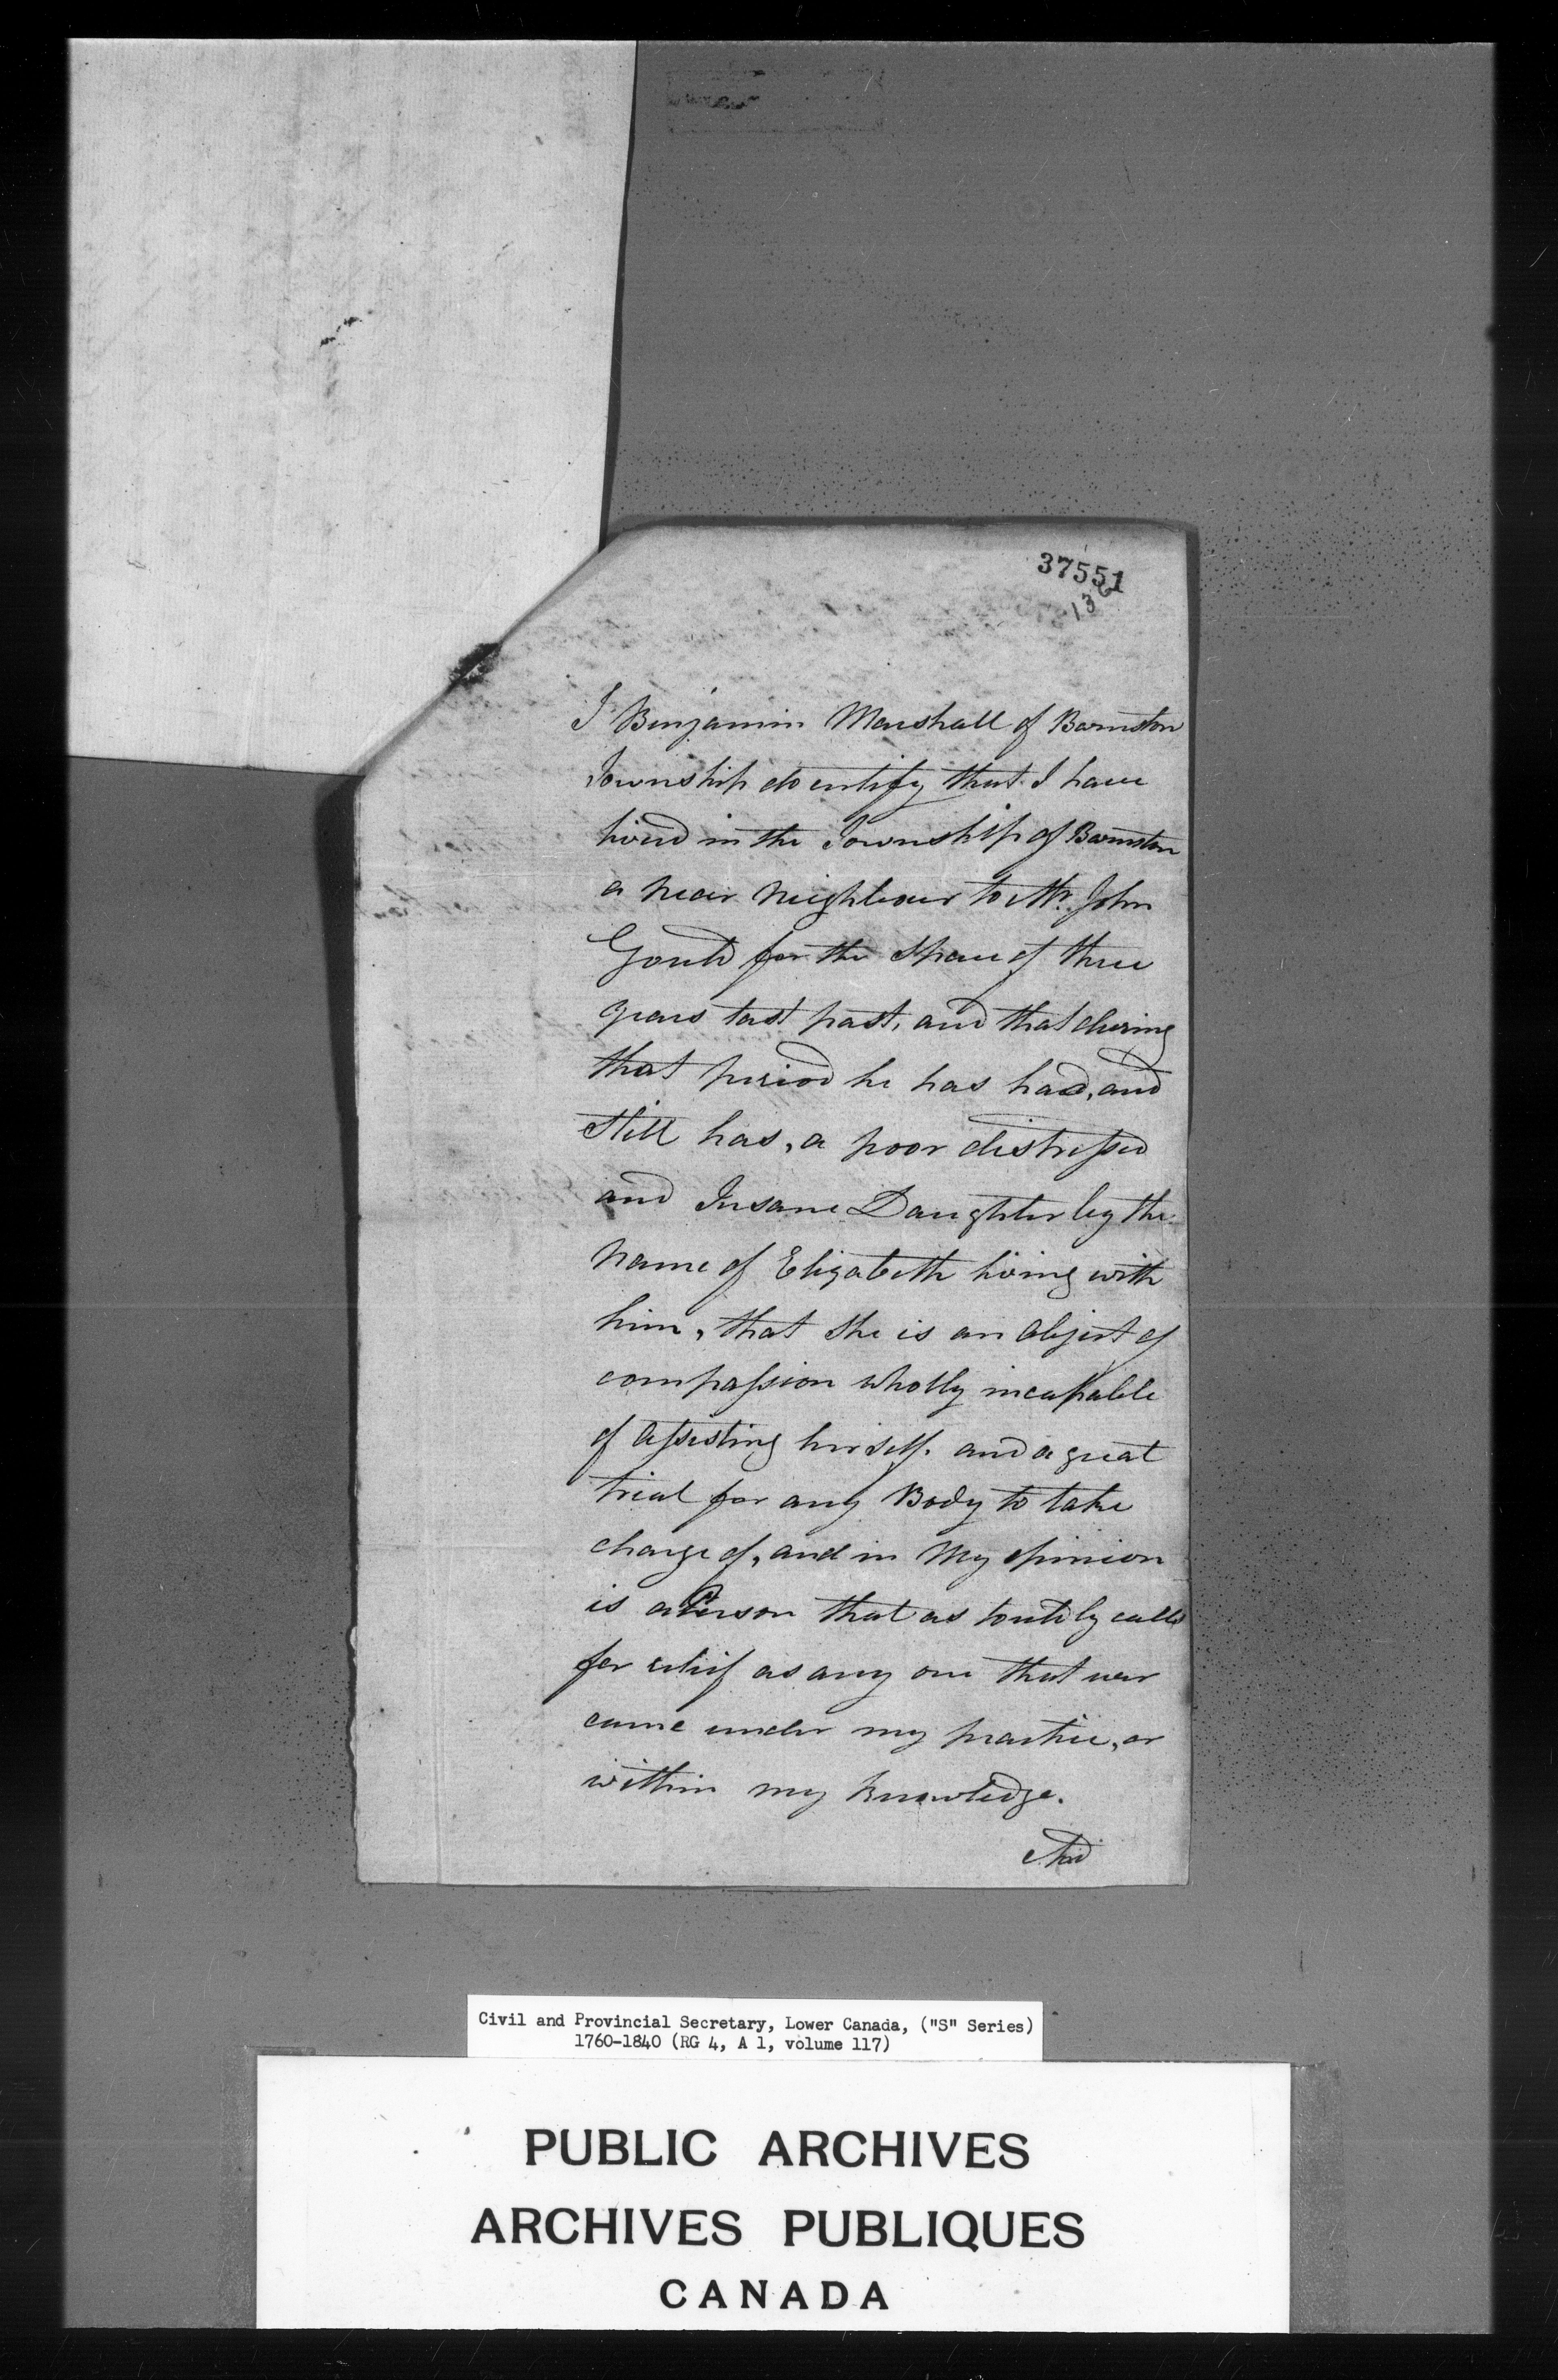 37551
136
I Benjamin Marshall of Barnston
Township do certify that I have
lived in the Township of Barnston
a near neighbour to Mr. John
Gould for the space of three
years last past, and that during
that period he has had, and
still has, a poor distressed
and Insane Daughter by the
name of Elizabeth living with
him, that she is an Object of
compassion wholly incapable
of Assisting herself. and a great
trial for any Body to take
charge of, and in My opinion
is a Person that as loudly calls
for relief as any one that ever
came under my practice, or
within my knowledge.
And
Civil and Provincial Secretary, Lower Canada, ("S" Series)
1760-1840 (RG 4, A 1, volume 117)
PUBLIC ARCHIVES
ARCHIVES PUBLIQUES
CANADA